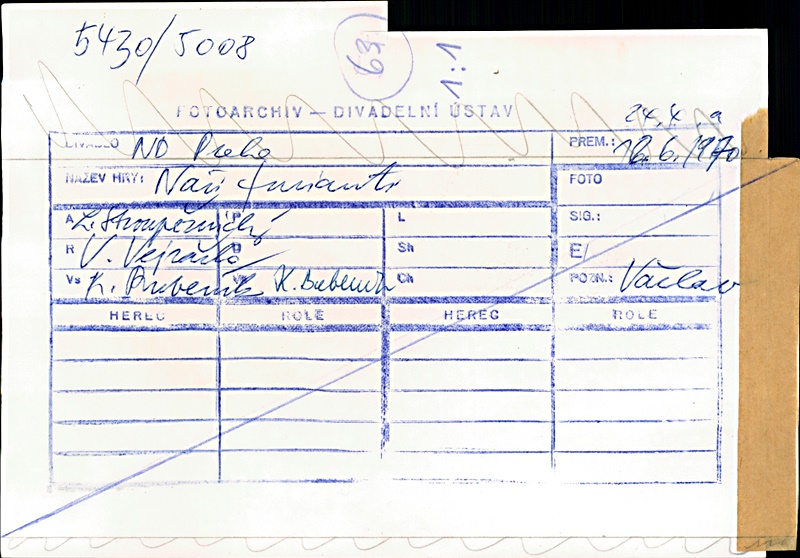 5430/5008
63
1:1
FOTOARCHIV — DIVADELNÍ ÚSTAV
24. 4. a
DIVADLO ND Praha
PREM.: 18. 6. 1970
NÁZEV HRY: Naši furianti
FOTO
A L. Stroupežnický P L SIG.:
R V. Vejražka D Sh E/
Vs K. Bubeník K. Bubeník Ch POZN.: Václav
HEREC ROLE HEREC ROLE